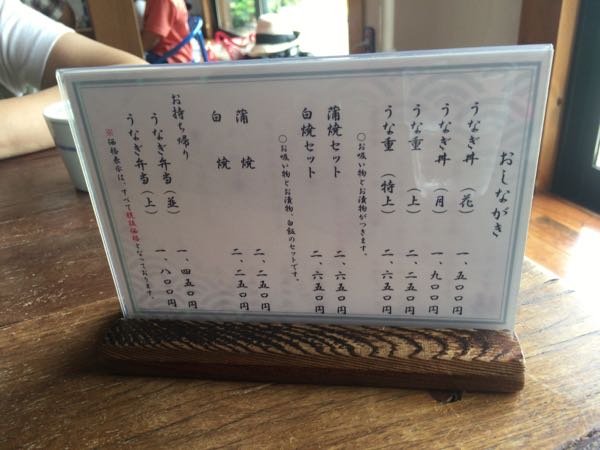 おしながき
うなぎ丼 (花) 一、五〇〇円
うなぎ丼 (月) 一、九〇〇円
うな重 (上) 二、二五〇円
うな重 (特上) 二、六五〇円
〇お吸い物とお漬物がつきます。
蒲焼セット 二、六五〇円
白焼セット 二、六五〇円
〇お吸い物とお漬物、白飯のセットです。
蒲焼 二、二五〇円
白焼 二、二五〇円
お持ち帰り
うなぎ弁当(並) 一、四五〇円
うなぎ弁当(上) 一、八〇〇円
※価格表示は、すべて税抜価格となっております。